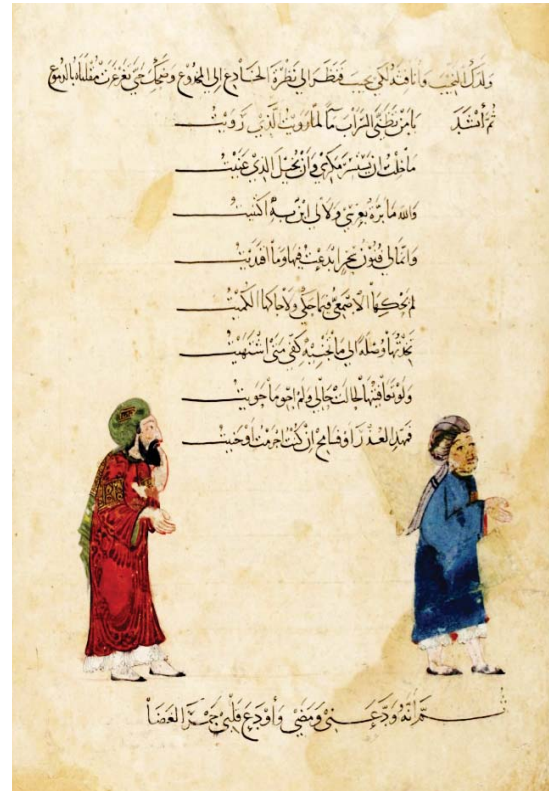 ولدك النجيب وانافثه لكي يجيب فنظر الي نظرة الخادع الي المخدوع وضحك حتي تغرغرت مقلتاه بالدموع
ثم أنشد يا من تظني السراب مآ لما رويت الذي رويت
ما خلت ان يستسر مكري وان يخيل الذي عنيت
والله ما برة بعرسي ولا لي ابن به اكتنيت
وانما لي فنون سحر ابدعت فيها وما اقتديت
لم يحكها الاصمعي فيما حكي ولا حاكها الكميت
تخذتها وصلة الي ما تجنيه كفي متي اشتهيت
ولو تعافيتها لحالت حالي ولم احو ما حويت
فمهد العذر أو فسامح ان كنت اجرمت أو جنيت
ثم انه ودعني ومضي وأودع قلبي جمر الغضا